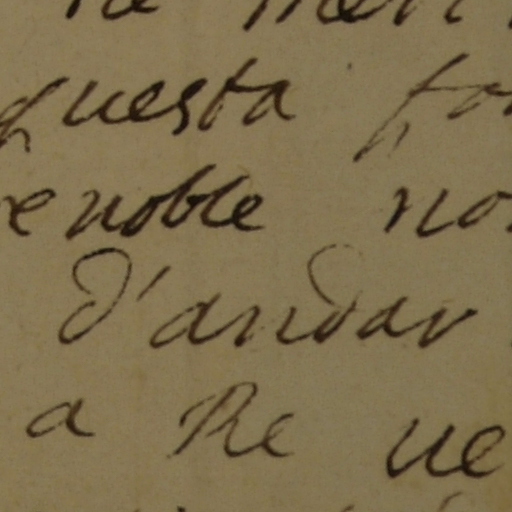 questa
enoble no
d'andar
a Re ve